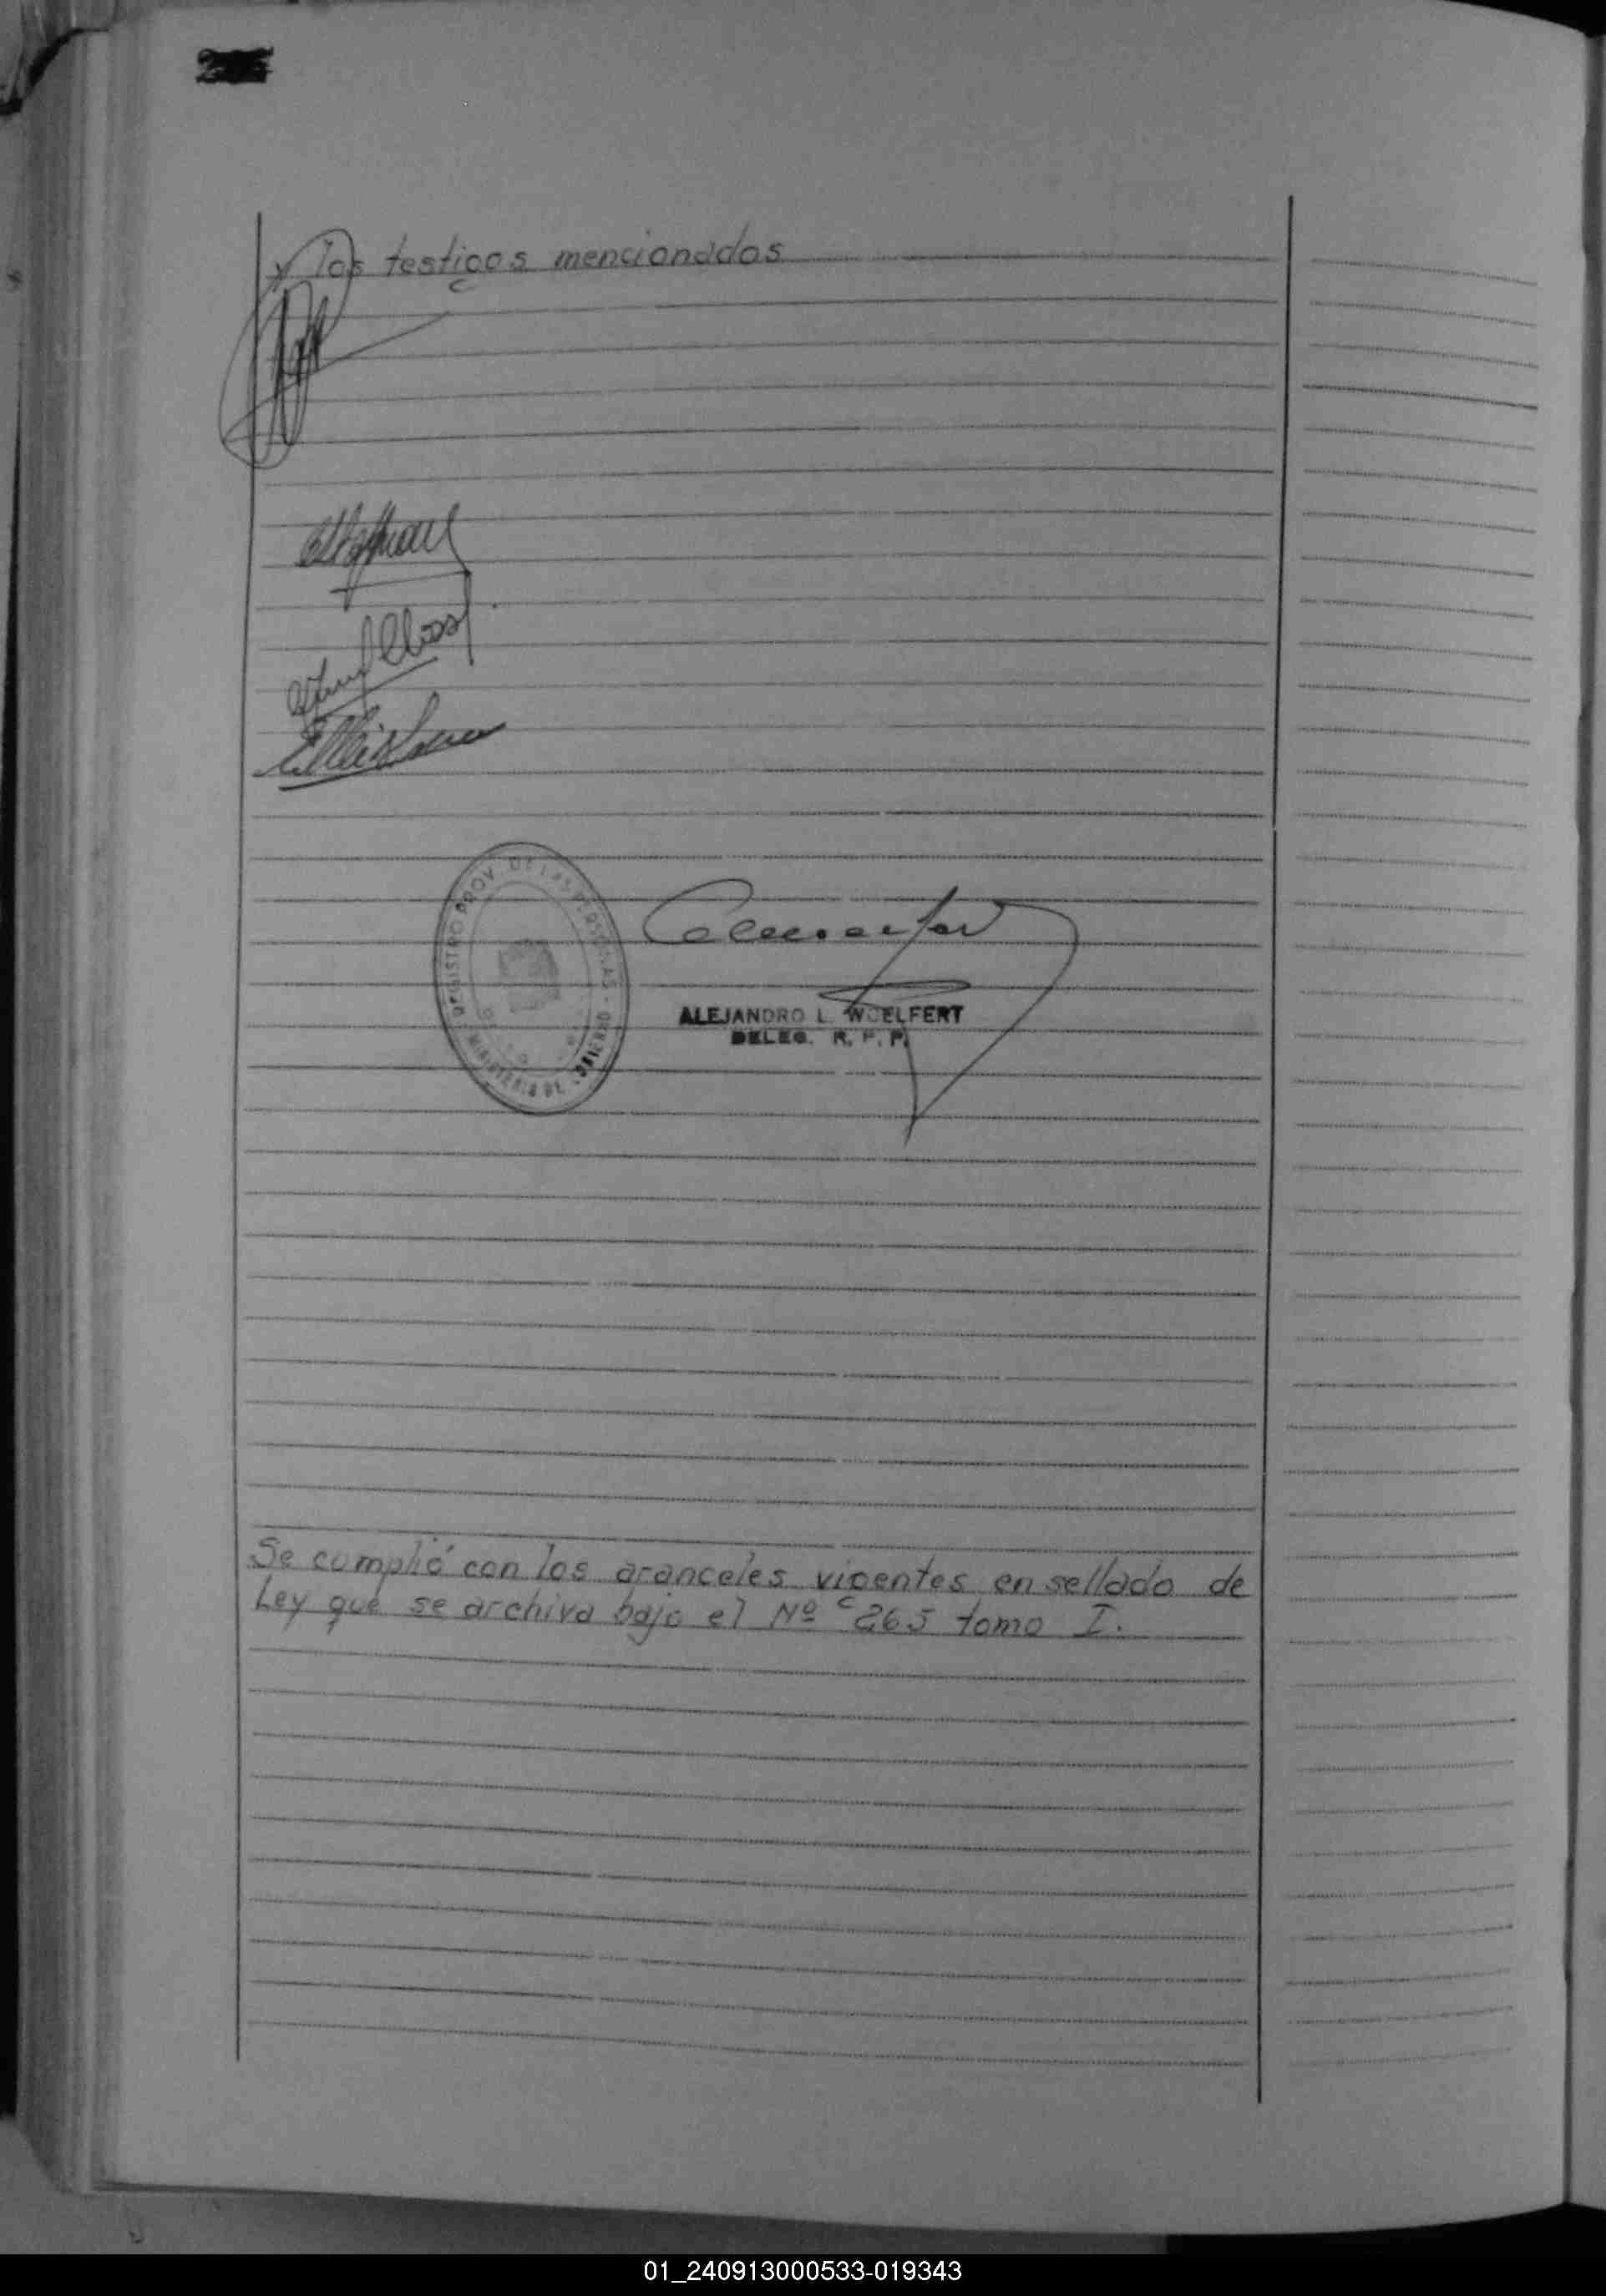 y los testigos mencionados
REGISTRO PROV. DE LAS PERSONAS - MINISTERIO DE GOBIERNO
ALEJANDRO L. WOELFERT
DELEG. R. P. P.
Se cumplió con los aranceles vigentes en sellado de
Ley que se archiva bajo el Nº 265 tomo I.
01_240913000533-019343